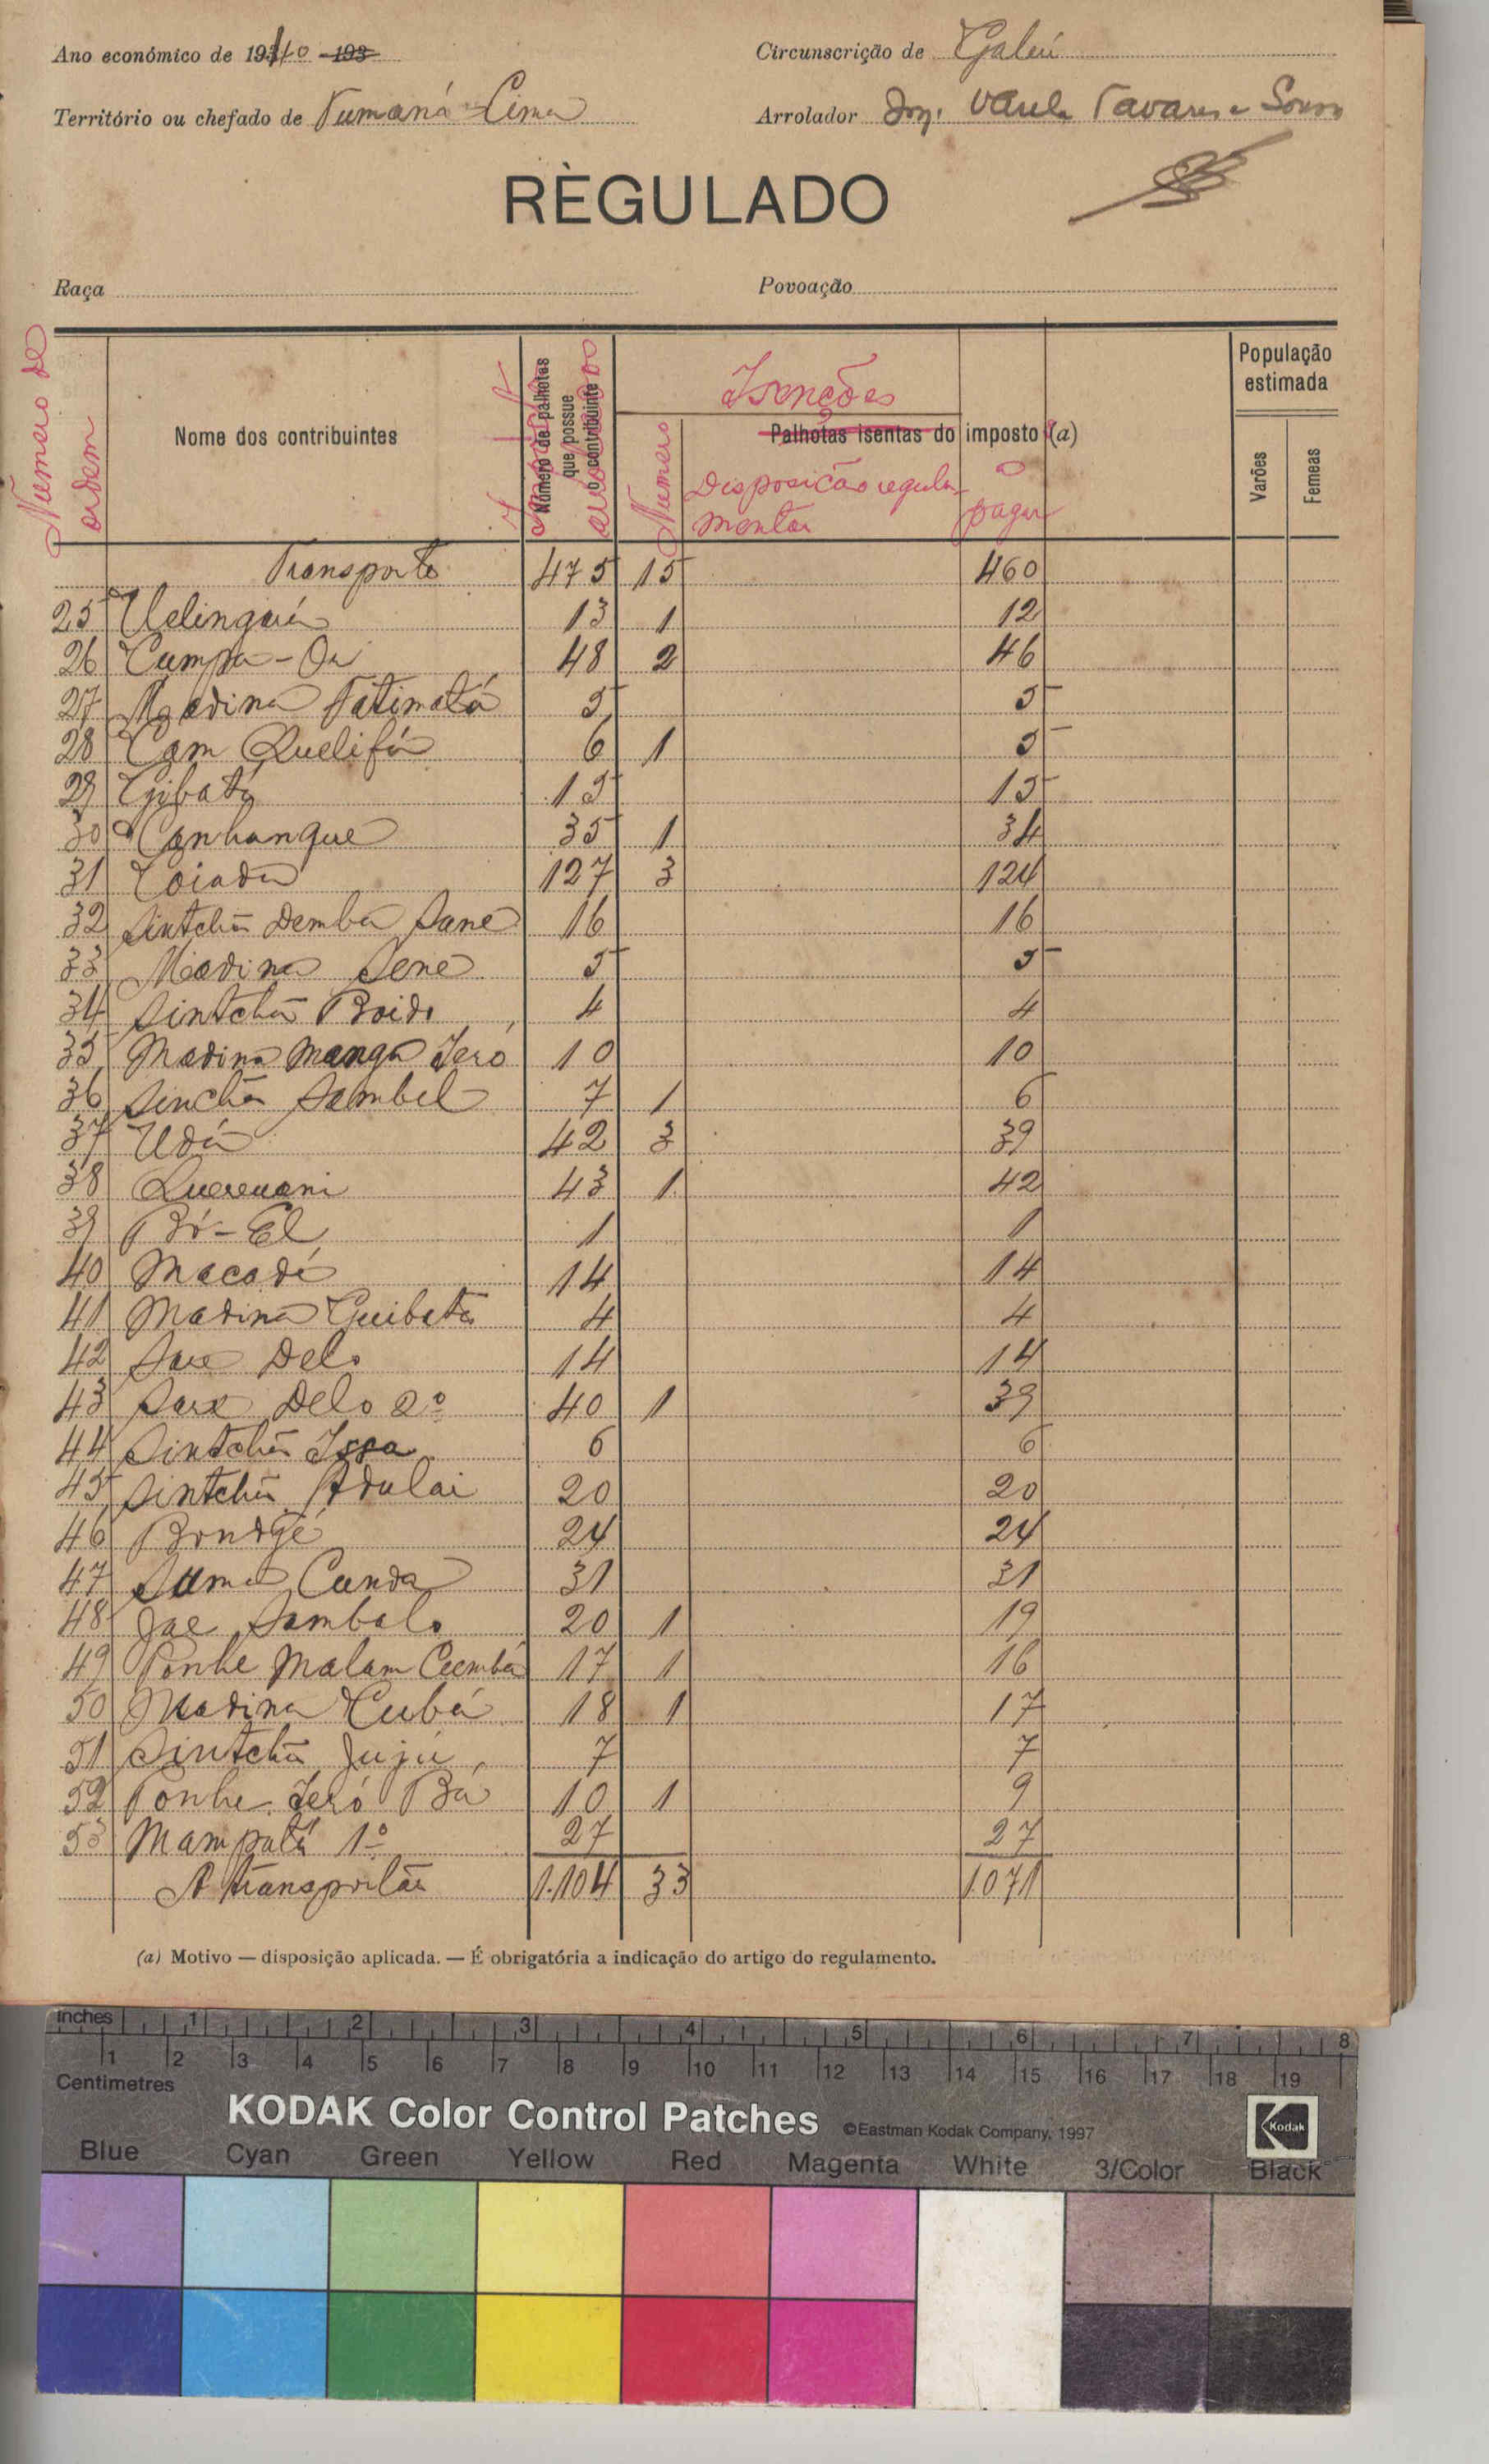 Ano económico de 1940 193
Circunscrição de Gabú
Território ou chefado de Tumaná-Cima
Arrolador Tavares e Sousa
RÈGULADO
Raça
Povoação
Número de ordem
Nome dos contribuintes
Número de palhotas que possue o contribuinte
Isenções
Palhotas isentas do imposto (a)
Número
Disposição regulamentar
a pagar
População estimada
Varões
Femeas
Transporte 475 15 460
25 Velingará 13 1 12
26 Campa-Ori 48 2 46
27 Madina Fatimatá 5 5
28 Cam Quelifá 6 1 5
29 Gibatá 15 15
30 Canhanque 35 1 34
31 Coiada 127 3 124
32 Sintchã Demba Sané 16 16
33 Madina Sené 5 5
34 Sintchã Boido 4 4
35 Madina Manga Jeró 10 10
36 Sinchã Sambel 7 1 6
37 Udá 42 3 39
38 Quereuani 43 1 42
39 Bó-El 1 1
40 Macadé 14 14
41 Madina Guibata 4 4
42 Sare Delo 14 14
43 Sare Delo 2º 40 1 39
44 Sintchã Issa 6 6
45 Sintchã Adulai 20 20
46 Bondgé 24 24
47 Suma Cunda 31 31
48 Jae Sambalo 20 1 19
49 Ponhe Malam Cumbá 17 1 16
50 Madina Cubá 18 1 17
51 Sintchã Jujú 7 7
52 Ponhe Jeró Bá 10 1 9
53 Mampatá 1º 27 27
A transportar 1.104 33 1.071
(a) Motivo — disposição aplicada. — É obrigatória a indicação do artigo do regulamento.
inches 1 2 3 4 5 6 7 8
1 2 3 4 5 6 7 8 9 10 11 12 13 14 15 16 17 18 19
Centimetres
KODAK Color Control Patches ©Eastman Kodak Company, 1997 Kodak
Blue Cyan Green Yellow Red Magenta White 3/Color Black